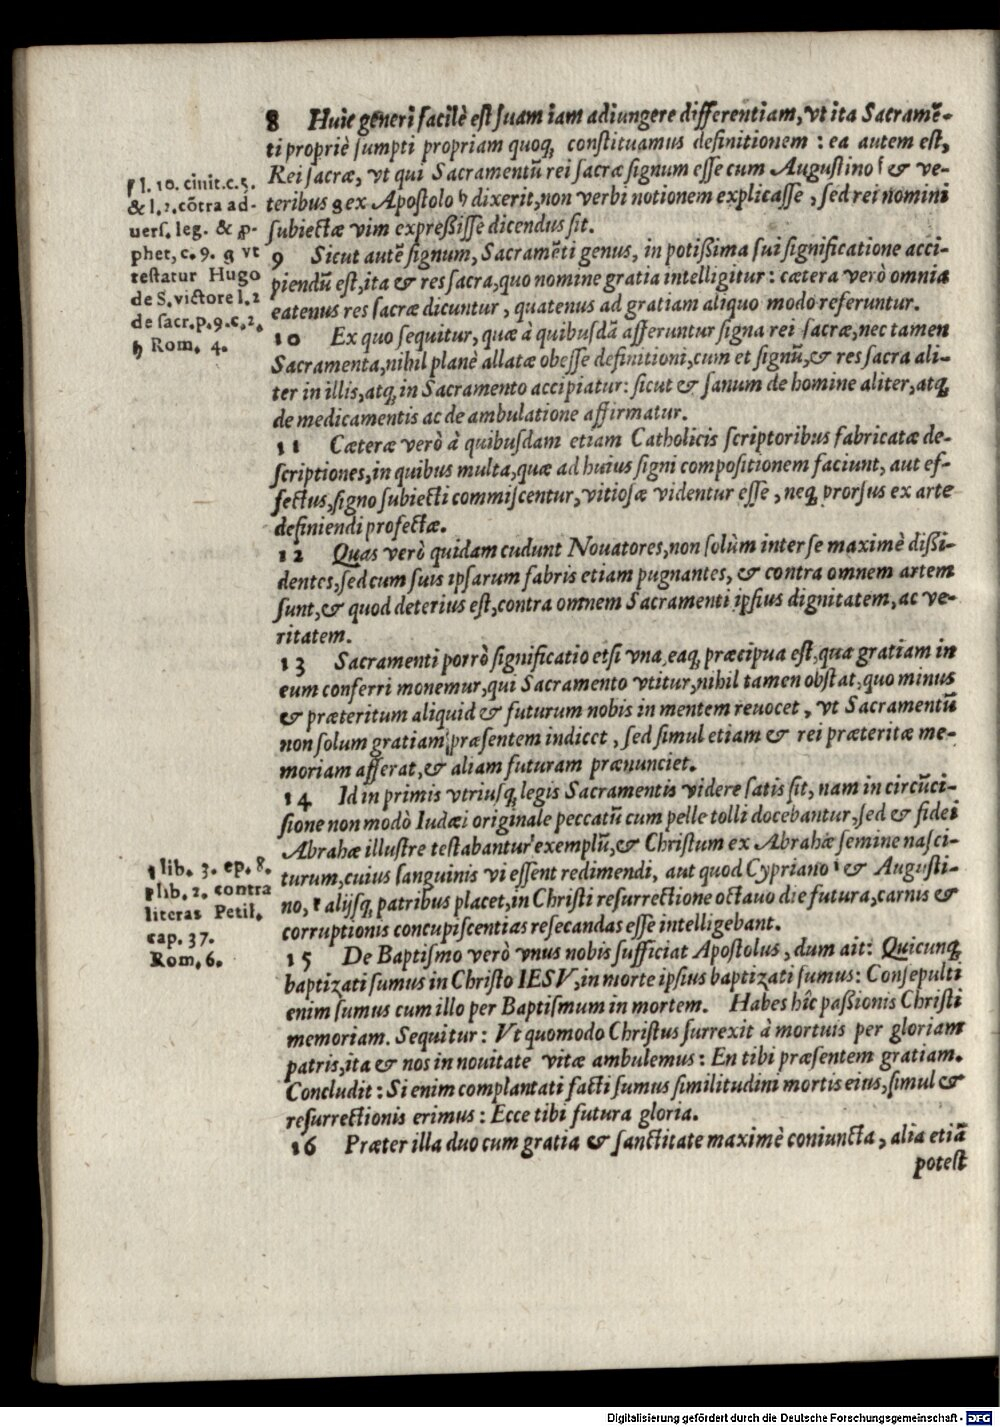 8 Huic generi facilè est suam iam adiungere differentiam, vt ita Sacramē-
ti propriè sumpti propriam quoq, constituamus definitionem : ea autem est,
Rei sacræ, vt qui Sacramentū rei sacræ signum esse cum Augustino f & ve-
teribus g ex Apostolo h dixerit, non verbi notionem explicasse, sed rei nomini
subiectæ vim expreßisse dicendus sit.
f l. 10. ciuit. c. 5.
& l. 2. cōtra ad-
uers. leg. & p-
phet, c. 9. g vt
testatur Hugo
de S. victore l. 2
de sacr. p. 9. c. 2.
h Rom. 4.
9 Sicut autē signum, Sacramēti genus, in potißima sui significatione acci-
piendū est, ita & res sacra, quo nomine gratia intelligitur : cætera verò omnia
eatenus res sacræ dicuntur, quatenus ad gratiam aliquo modo referuntur.
10 Ex quo sequitur, quæ à quibusdā afferuntur signa rei sacræ, nec tamen
Sacramenta, nihil planè allatæ obesse definitioni, cum et signū, & res sacra ali-
ter in illis, atq, in Sacramento accipiatur: sicut & sanum de homine aliter, atq,
de medicamentis ac de ambulatione affirmatur.
11 Cæteræ verò à quibusdam etiam Catholicis scriptoribus fabricatæ de-
scriptiones, in quibus multa, quæ ad huius signi compositionem faciunt, aut ef-
fectus, signo subiecti commiscentur, vitiosæ videntur esse, neq, prorsus ex arte
definiendi profectæ.
12 Quas verò quidam cudunt Nouatores, non solùm inter se maximè dißi-
dentes, sed cum suis ipsarum fabris etiam pugnantes, & contra omnem artem
sunt, & quod deterius est, contra omnem Sacramenti ipsius dignitatem, ac ve-
ritatem.
13 Sacramenti porrò significatio etsi vna, eaq, præcipua est, quæ gratiam in
eum conferri monemur, qui Sacramento vtitur, nihil tamen obstat, quo minus
& præteritum aliquid & futurum nobis in mentem reuocet, vt Sacramentū
non solum gratiam præsentem indicet, sed simul etiam & rei præteritæ me-
moriam afferat, & aliam futuram prænunciet.
14 Id in primis vtriusq, legis Sacramentis videre satis sit, nam in circūci-
sione non modò Iudæi originale peccatū cum pelle tolli docebantur, sed & fidei
Abrahæ illustre testabantur exemplū, & Christum ex Abrahæ semine nasci-
turum, cuius sanguinis vi essent redimendi, aut quod Cypriano i & Augusti-
no, k alijsq, patribus placet, in Christi resurrectione octauo die futura, carnis &
corruptionis concupiscentias resecandas esse intelligebant.
i lib. 3. ep. 8.
k lib. 2. contra
literas Petil.
cap. 37.
Rom. 6.
15 De Baptismo verò vnus nobis sufficiat Apostolus, dum ait: Quicunq,
baptizati sumus in Christo IESV, in morte ipsius baptizati sumus: Consepulti
enim sumus cum illo per Baptismum in mortem. Habes hîc paßionis Christi
memoriam. Sequitur : Vt quomodo Christus surrexit à mortuis per gloriam
patris, ita & nos in nouitate vitæ ambulemus : En tibi præsentem gratiam.
Concludit : Si enim complantati facti sumus similitudini mortis eius, simul &
resurrectionis erimus : Ecce tibi futura gloria.
16 Præter illa duo cum gratia & sanctitate maximè coniuncta, alia etiā
potest
Digitalisierung gefördert durch die Deutsche Forschungsgemeinschaft - DFG